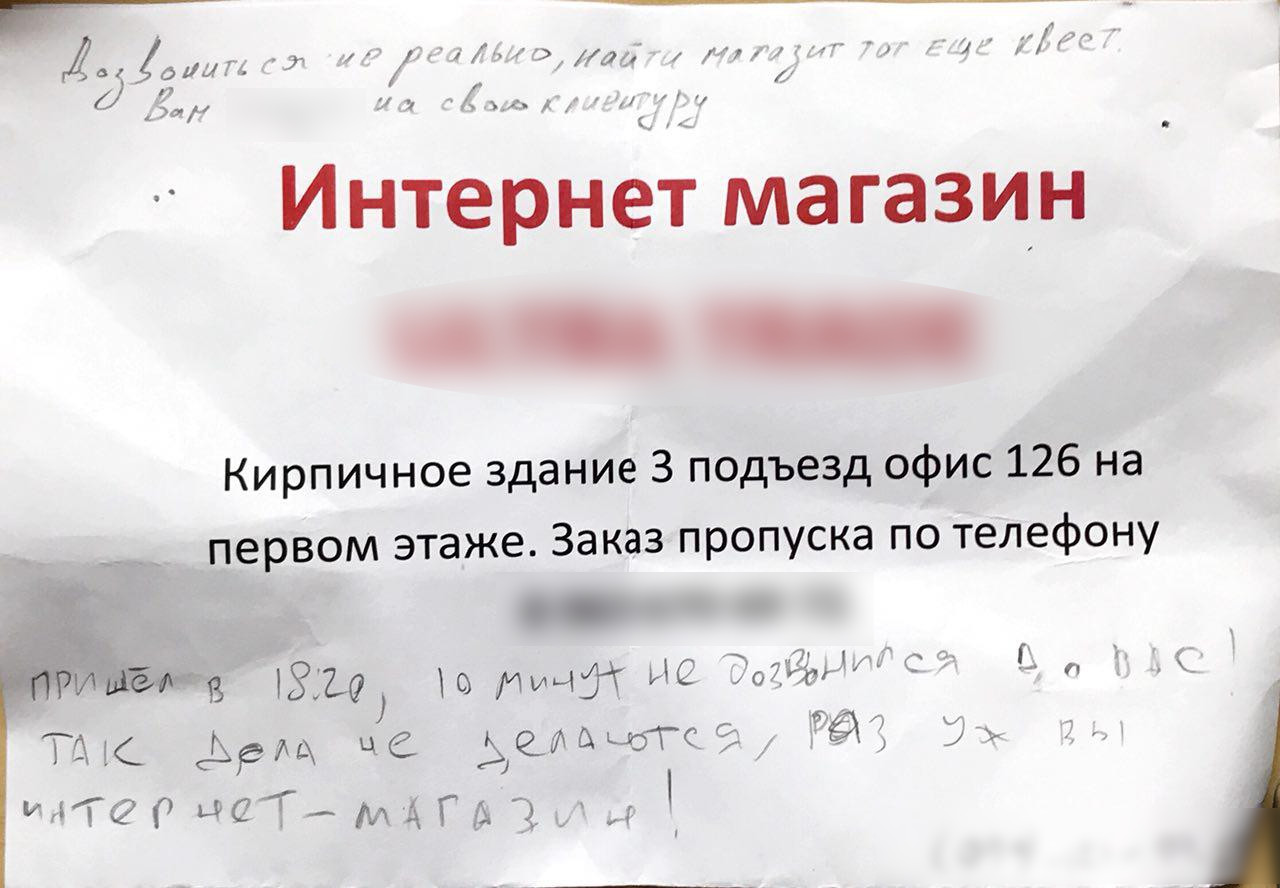 Дозвониться не реально, найти магазит тот еще квест.
Вам на свою клиентуру
Интернет магазин
Кирпичное здание 3 подъезд офис 126 на
первом этаже. Заказ пропуска по телефону
пришёл в 18:20, 10 минут не дозвонился до вас!
Так дела не делаются, раз уж вы
интернет-магазин!